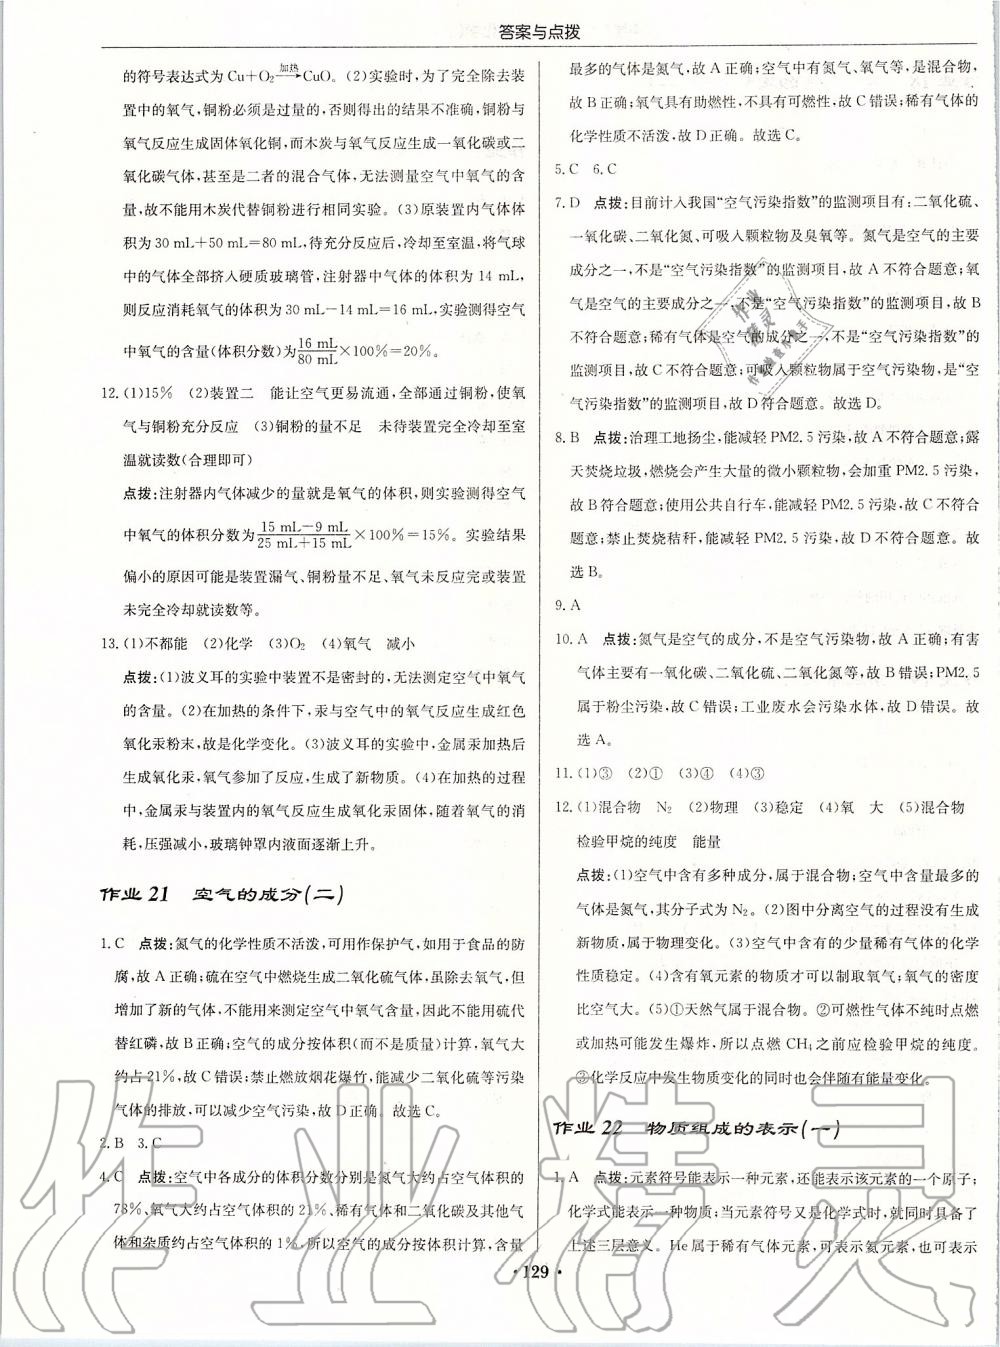 答案与点拨
的符号表达式为 Cu+O₂ —加热→ CuO。(2)实验时,为了完全除去装
置中的氧气,铜粉必须是过量的,否则得出的结果不准确,铜粉与
氧气反应生成固体氧化铜,而木炭与氧气反应生成一氧化碳或二
氧化碳气体,甚至是二者的混合气体,无法测量空气中氧气的含
量,故不能用木炭代替铜粉进行相同实验。(3)原装置内气体体
积为 30 mL+50 mL=80 mL,待充分反应后,冷却至室温,将气球
中的气体全部挤入硬质玻璃管,注射器中气体的体积为 14 mL,
则反应消耗氧气的体积为 30 mL-14 mL=16 mL,实验测得空气
中氧气的含量(体积分数)为 16 mL/80 mL ×100%=20%。
12. (1)15% (2)装置二 能让空气更易流通,全部通过铜粉,使氧
气与铜粉充分反应 (3)铜粉的量不足 未待装置完全冷却至室
温就读数(合理即可)
点拨:注射器内气体减少的量就是氧气的体积,则实验测得空气
中氧气的体积分数为 15 mL-9 mL/25 mL+15 mL ×100%=15%。实验结果
偏小的原因可能是装置漏气、铜粉量不足、氧气未反应完或装置
未完全冷却就读数等。
13. (1)不都能 (2)化学 (3)O₂ (4)氧气 减小
点拨:(1)波义耳的实验中装置不是密封的,无法测定空气中氧气
的含量。(2)在加热的条件下,汞与空气中的氧气反应生成红色
氧化汞粉末,故是化学变化。(3)波义耳的实验中,金属汞加热后
生成氧化汞,氧气参加了反应,生成了新物质。(4)在加热的过程
中,金属汞与玻璃钟罩内的氧气反应生成氧化汞固体,随着氧气的消
耗,压强减小,玻璃钟罩内液面逐渐上升。
作业 21 空气的成分(二)
1. C 点拨:氮气的化学性质不活泼,可用作保护气,如用于食品的防
腐,故 A 正确;硫在空气中燃烧生成二氧化硫气体,虽除去氧气,但
增加了新的气体,不能用来测定空气中氧气含量,因此不能用硫代
替红磷,故 B 正确;空气的成分按体积(而不是质量)计算,氧气大
约占 21%,故 C 错误;禁止燃放烟花爆竹,能减少二氧化硫等污染
气体的排放,可以减少空气污染,故 D 正确。故选 C。
2. B 3. C
4. C 点拨:空气中各成分的体积分数分别是氮气大约占空气体积的
78%、氧气大约占空气体积的 21%、稀有气体和二氧化碳及其他气
体和杂质约占空气体积的 1%,所以空气的成分按体积计算,含量
最多的气体是氮气,故 A 正确;空气中有氮气、氧气等,是混合物,
故 B 正确;氧气具有助燃性,不具有可燃性,故 C 错误;稀有气体的
化学性质不活泼,故 D 正确。故选 C。
5. C 6. C
7. D 点拨:目前计入我国“空气污染指数”的监测项目有:二氧化硫、
一氧化碳、二氧化氮、可吸入颗粒物及臭氧等。氮气是空气的主要
成分之一,不是“空气污染指数”的监测项目,故 A 不符合题意;氧
气是空气的主要成分之一,不是“空气污染指数”的监测项目,故 B
不符合题意;稀有气体是空气的成分之一,不是“空气污染指数”的
监测项目,故 C 不符合题意;可吸入颗粒物属于空气污染物,是“空
气污染指数”的监测项目,故 D 符合题意。故选 D。
8. B 点拨:治理工地扬尘,能减轻 PM2.5 污染,故 A 不符合题意;露
天焚烧垃圾,燃烧会产生大量的微小颗粒物,会加重 PM2.5 污染,
故 B 符合题意;使用公共自行车,能减轻 PM2.5 污染,故 C 不符合
题意;禁止焚烧秸秆,能减轻 PM2.5 污染,故 D 不符合题意。故
选 B。
9. A
10. A 点拨:氮气是空气的成分,不是空气污染物,故 A 正确;有害
气体主要有一氧化碳、二氧化硫、二氧化氮等,故 B 错误;PM2.5
属于粉尘污染,故 C 错误;工业废水会污染水体,故 D 错误。故
选 A。
11. (1)③ (2)① (3)④ (4)③
12. (1)混合物 N₂ (2)物理 (3)稳定 (4)氧 大 (5)混合物
检验甲烷的纯度 能量
点拨:(1)空气中含有多种成分,属于混合物;空气中含量最多的
气体是氮气,其分子式为 N₂。(2)图中分离空气的过程没有生成
新物质,属于物理变化。(3)空气中含有的少量稀有气体的化学
性质稳定。(4)含有氧元素的物质才可以制取氧气;氧气的密度
比空气大。(5)①天然气属于混合物。②可燃性气体不纯时点燃
或加热可能发生爆炸,所以点燃 CH₄ 之前应检验甲烷的纯度。
③化学反应中发生物质变化的同时也会伴随有能量变化。
作业 22 物质组成的表示(一)
1. A 点拨:元素符号能表示一种元素,还能表示该元素的一个原子;
化学式能表示一种物质;当元素符号又是化学式时,就同时具备了
上述三层意义。He 属于稀有气体元素,可表示氦元素,也可表示
· 129 ·
作业精灵